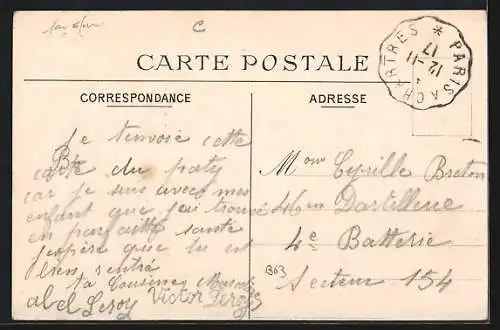 C
CARTE POSTALE
PARIS A CHARTRES *
12 - 11
17
CORRESPONDANCE
ADRESSE
Je tenvoie cette
carte du paty
car je suis avec mes
enfant que j'ai trouvé
en parfaite santé
jespère que lui est
bien rentré
ta Cousine
abel Leroy Victor Leroy
Mon Cyrille Breton
46em Dartillerie
4e Batterie
Secteur 154
B63